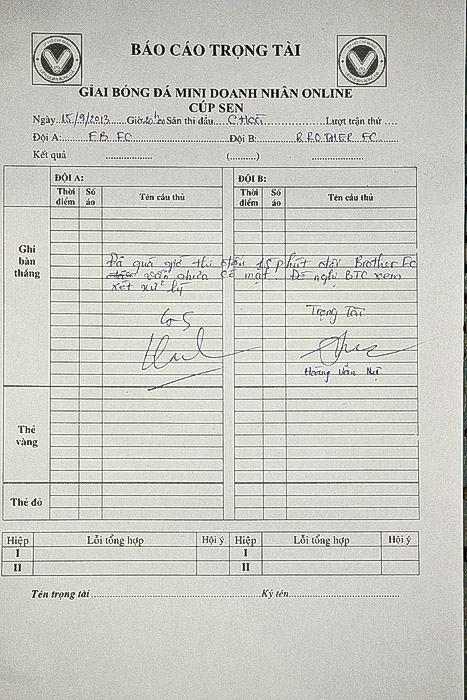 BÁO CÁO TRỌNG TÀI
GIẢI BÓNG ĐÁ MINI DOANH NHÂN ONLINE
CÚP SEN
Ngày 15/9/2013 Giờ Sân thi đấu Lượt trận thứ
Đội A: FB FC Đội B: BROTHER FC
Kết quả (..........)
ĐỘI A: ĐỘI B:
Thời điểm Số áo Tên cầu thủ Thời điểm Số áo Tên cầu thủ
Ghi bàn thắng
Đã quá giờ thi đấu 15 phút đội Brother FC
vẫn chưa có mặt. Đề nghị BTC xem
xét xử lý
GS Trọng Tài
Hoàng Văn
Thẻ vàng
Thẻ đỏ
Hiệp Lỗi tổng hợp Hội ý Hiệp Lỗi tổng hợp Hội ý
I I
II II
Tên trọng tài Ký tên